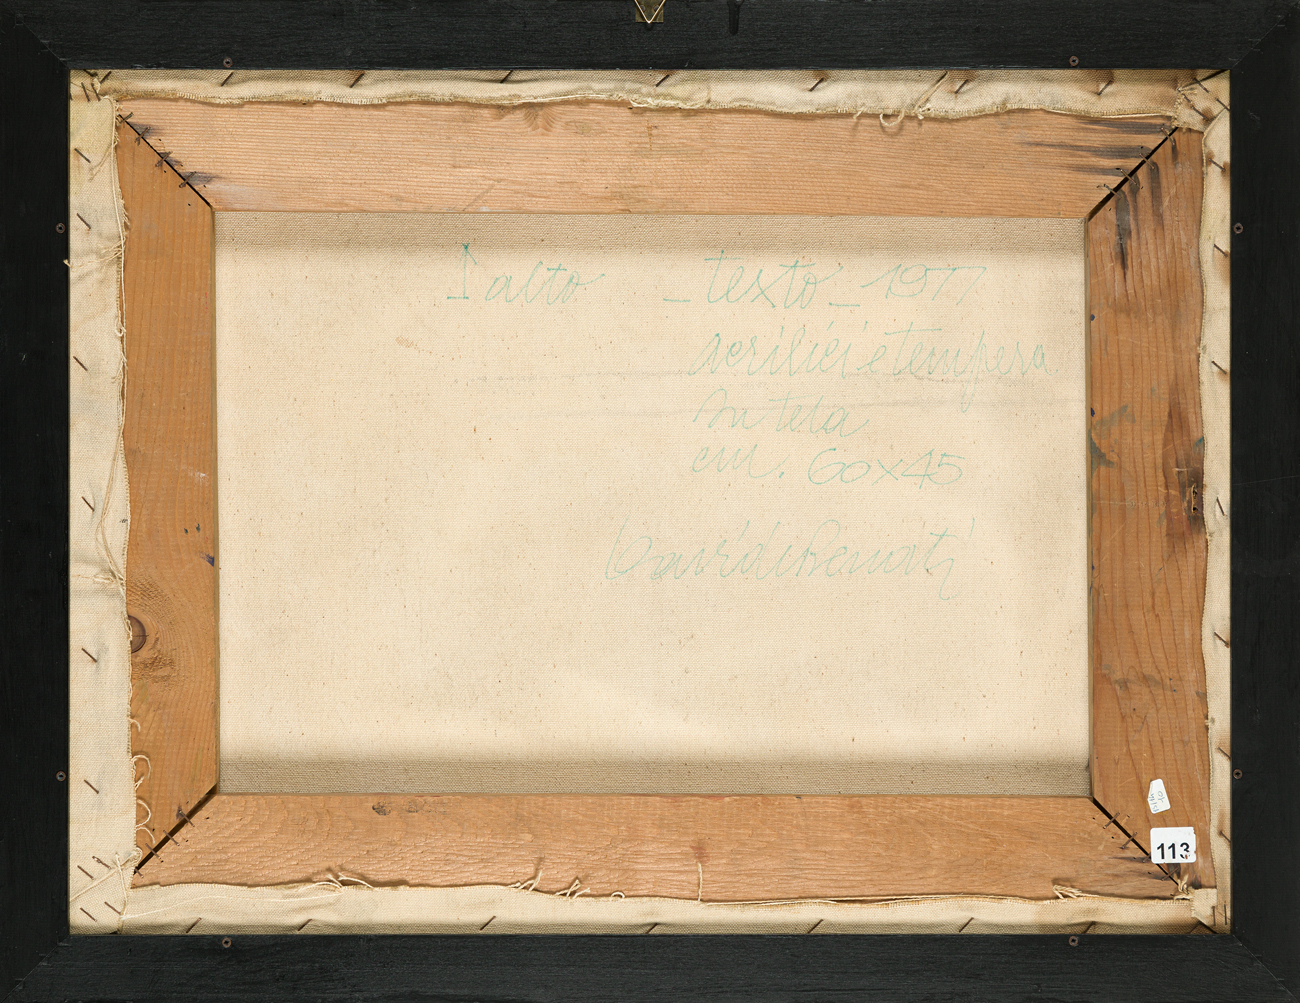 ↑ alto _ texto _ 1977
acrilici e tempera
su tela
cm. 60x45
Davide Benati
113